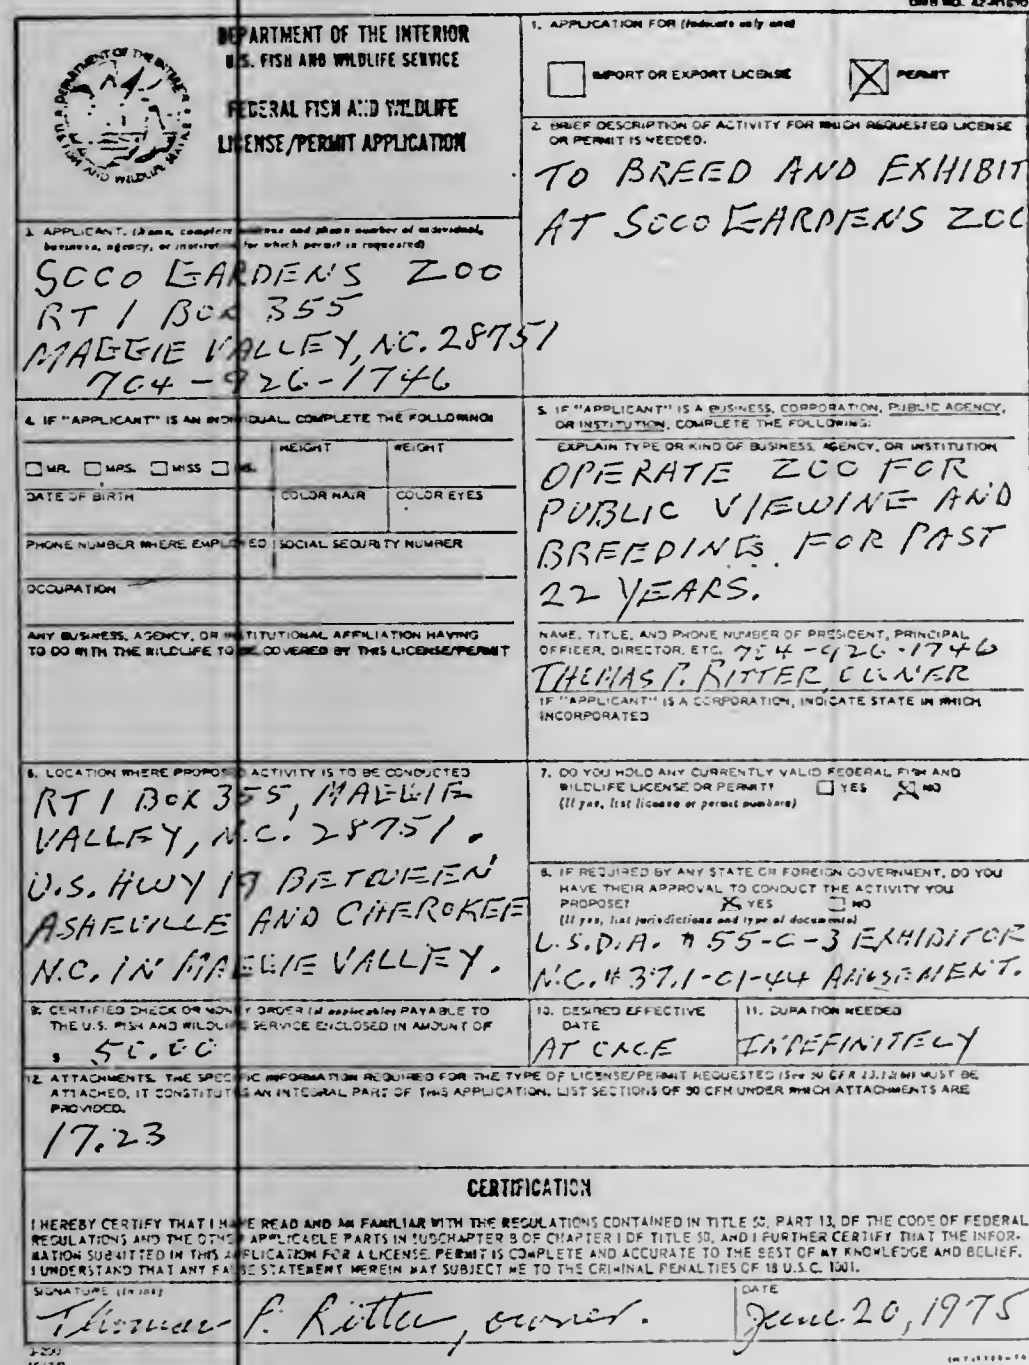 DEPARTMENT OF THE INTERIOR
U.S. FISH AND WILDLIFE SERVICE
FEDERAL FISH AND WILDLIFE
LICENSE/PERMIT APPLICATION
OMB NO. 42-R1670
1. APPLICATION FOR (Indicate only one)
IMPORT OR EXPORT LICENSE
PERMIT
2. BRIEF DESCRIPTION OF ACTIVITY FOR WHICH REQUESTED LICENSE
OR PERMIT IS NEEDED.
TO BREED AND EXHIBIT
AT SOCO GARDENS ZOO
3. APPLICANT. (Name, complete address and phone number of individual,
business, agency, or institution for which permit is requested)
SOCO GARDENS ZOO
RT 1 BOX 355
MAGGIE VALLEY, NC. 28751
704-926-1746
4. IF "APPLICANT" IS AN INDIVIDUAL, COMPLETE THE FOLLOWING:
MR. MRS. MISS MS.
HEIGHT
WEIGHT
DATE OF BIRTH
COLOR HAIR
COLOR EYES
PHONE NUMBER WHERE EMPLOYED
SOCIAL SECURITY NUMBER
OCCUPATION
ANY BUSINESS, AGENCY, OR INSTITUTIONAL AFFILIATION HAVING
TO DO WITH THE WILDLIFE TO BE COVERED BY THIS LICENSE/PERMIT
5. IF "APPLICANT" IS A BUSINESS, CORPORATION, PUBLIC AGENCY,
OR INSTITUTION, COMPLETE THE FOLLOWING:
EXPLAIN TYPE OR KIND OF BUSINESS, AGENCY, OR INSTITUTION
OPERATE ZOO FOR
PUBLIC VIEWING AND
BREEDING FOR PAST
22 YEARS.
NAME, TITLE, AND PHONE NUMBER OF PRESIDENT, PRINCIPAL
OFFICER, DIRECTOR, ETC. 704-926-1746
THOMAS P. RITTER, OWNER
IF "APPLICANT" IS A CORPORATION, INDICATE STATE IN WHICH
INCORPORATED
6. LOCATION WHERE PROPOSED ACTIVITY IS TO BE CONDUCTED
RT 1 BOX 355, MAGGIE
VALLEY, N.C. 28751.
U.S. HWY 19 BETWEEN
ASHEVILLE AND CHEROKEE
N.C. IN MAGGIE VALLEY.
7. DO YOU HOLD ANY CURRENTLY VALID FEDERAL FISH AND
WILDLIFE LICENSE OR PERMIT? YES NO
(If yes, list license or permit numbers)
8. IF REQUIRED BY ANY STATE OR FOREIGN GOVERNMENT, DO YOU
HAVE THEIR APPROVAL TO CONDUCT THE ACTIVITY YOU
PROPOSE? YES NO
(If yes, list jurisdictions and type of documents)
U.S.D.A. # 55-C-3 EXHIBITOR
N.C. # 37.1-01-44 AMUSEMENT.
9. CERTIFIED CHECK OR MONEY ORDER (if applicable) PAYABLE TO
THE U.S. FISH AND WILDLIFE SERVICE ENCLOSED IN AMOUNT OF
$ 50.00
10. DESIRED EFFECTIVE
DATE
AT ONCE
11. DURATION NEEDED
INDEFINITELY
12. ATTACHMENTS. THE SPECIFIC INFORMATION REQUIRED FOR THE TYPE OF LICENSE/PERMIT REQUESTED (See 50 CFR 13.12(b)) MUST BE
ATTACHED, IT CONSTITUTES AN INTEGRAL PART OF THIS APPLICATION. LIST SECTIONS OF 50 CFR UNDER WHICH ATTACHMENTS ARE
PROVIDED.
17.23
CERTIFICATION
I HEREBY CERTIFY THAT I HAVE READ AND AM FAMILIAR WITH THE REGULATIONS CONTAINED IN TITLE 50, PART 13, OF THE CODE OF FEDERAL
REGULATIONS AND THE OTHER APPLICABLE PARTS IN SUBCHAPTER B OF CHAPTER I OF TITLE 50, AND I FURTHER CERTIFY THAT THE INFOR-
MATION SUBMITTED IN THIS APPLICATION FOR A LICENSE/PERMIT IS COMPLETE AND ACCURATE TO THE BEST OF MY KNOWLEDGE AND BELIEF.
I UNDERSTAND THAT ANY FALSE STATEMENT HEREIN MAY SUBJECT ME TO THE CRIMINAL PENALTIES OF 18 U.S.C. 1001.
SIGNATURE (In ink)
Thomas P. Ritter, owner.
DATE
June 20, 1975
3-200